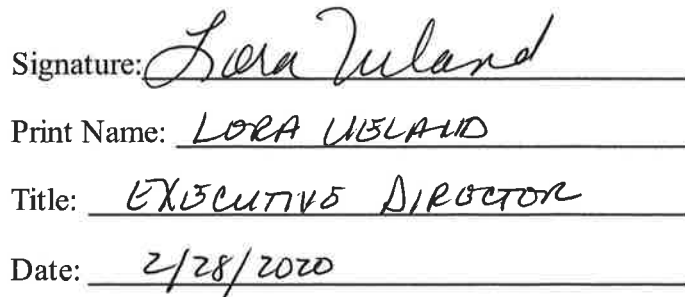 Signature: Lora Vieland
Print Name: LORA VIELAND
Title: EXECUTIVE DIRECTOR
Date: 2/28/2020